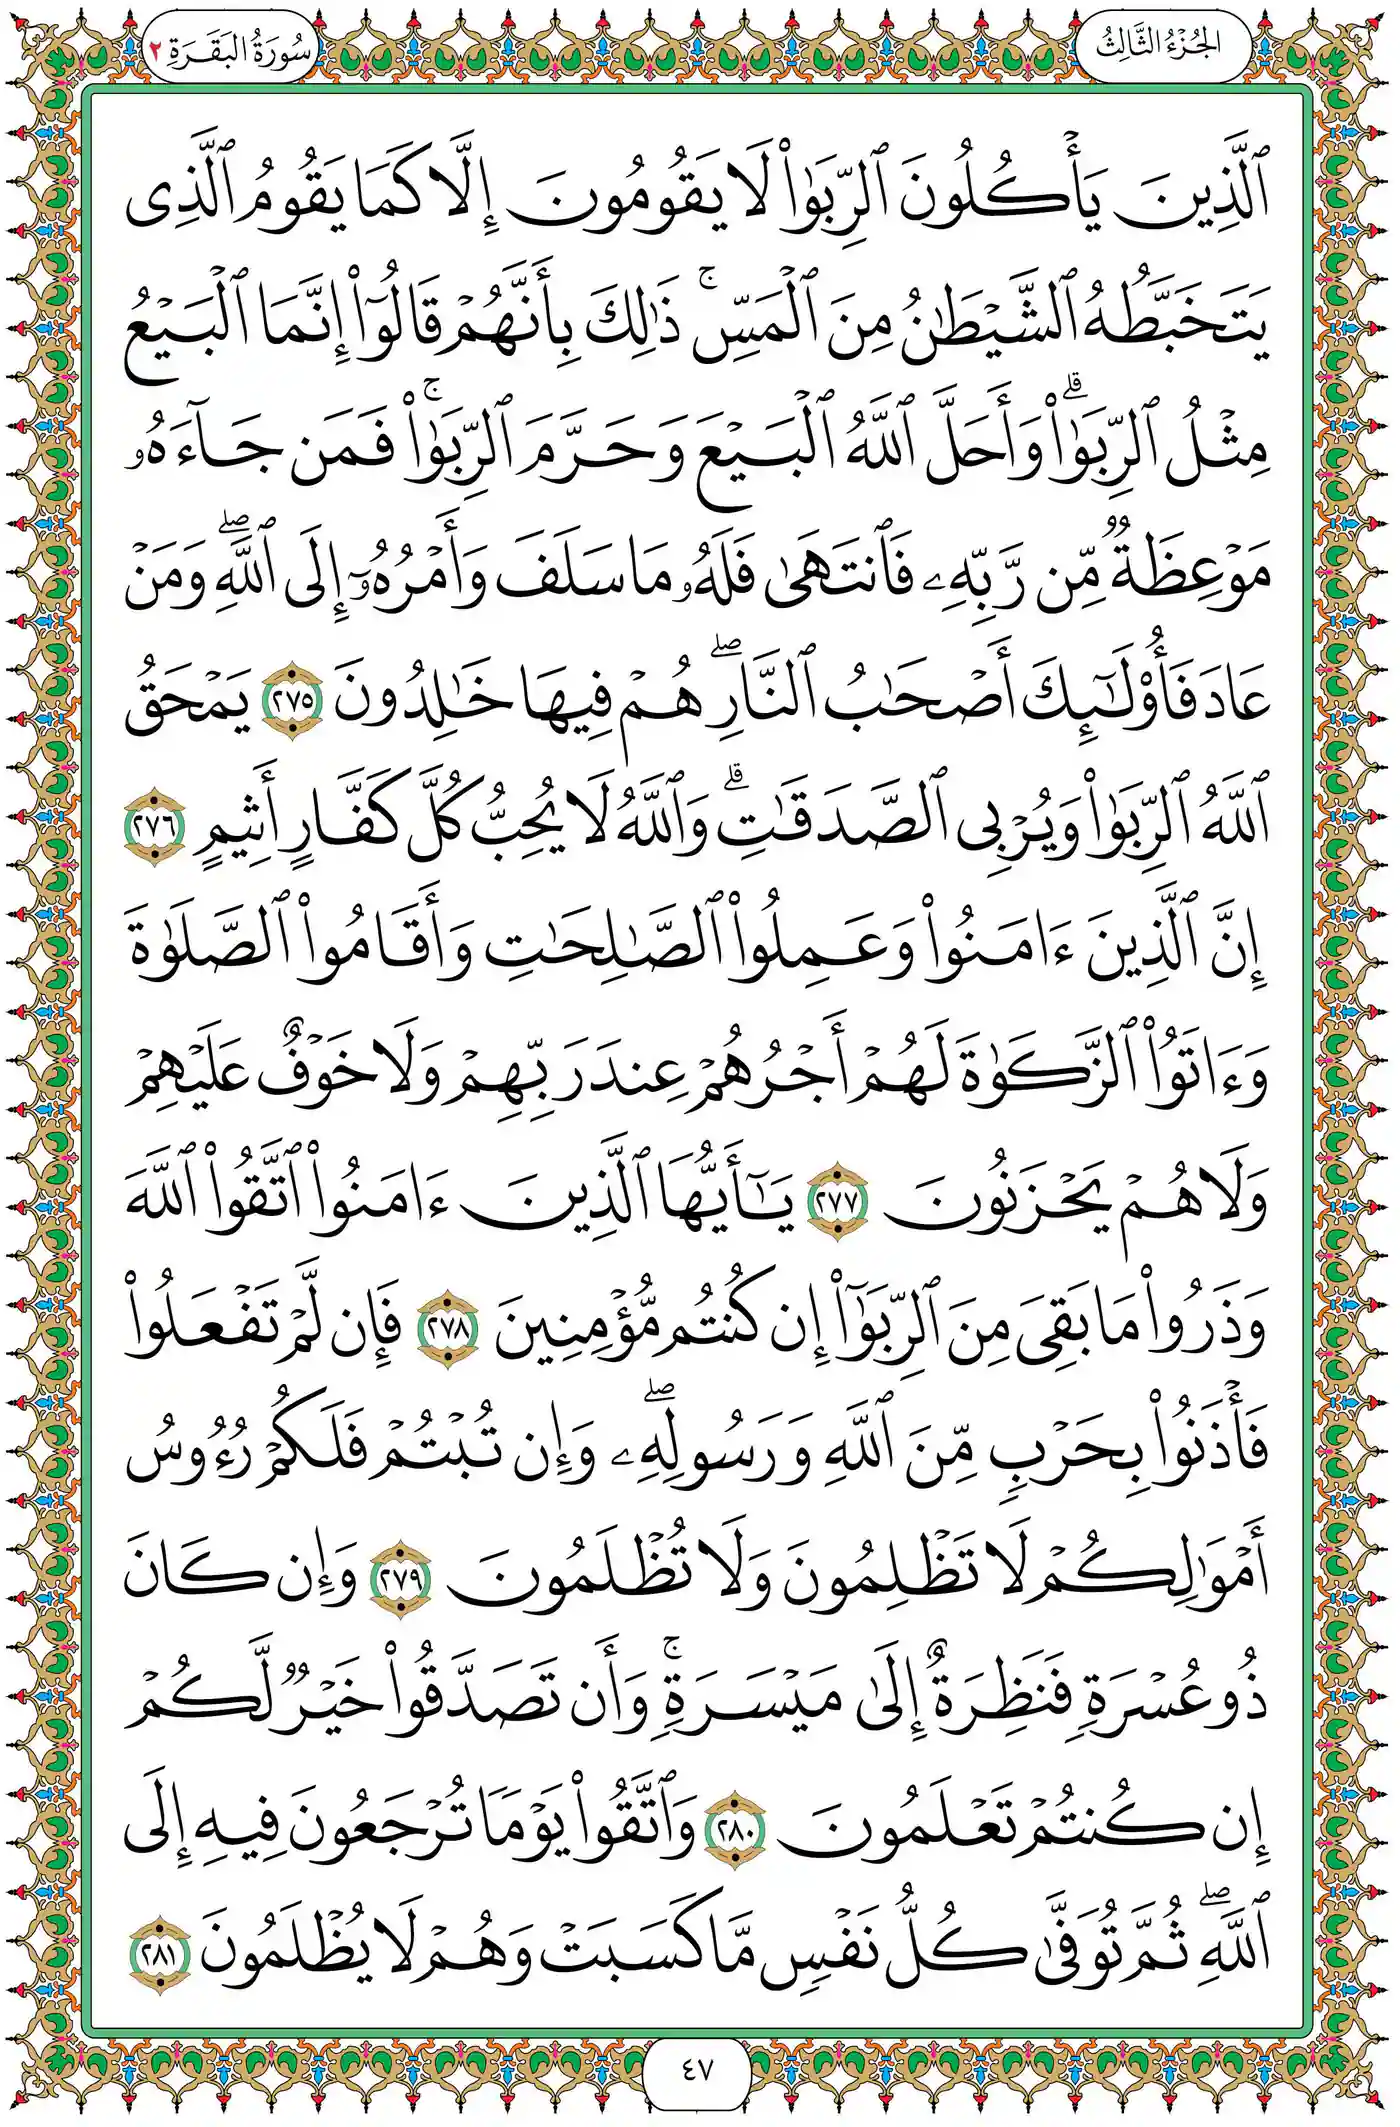 الجُزْءُ الثَّالِثُ
سُورَةُ البَقَرَةِ ٢
ٱلَّذِينَ يَأۡكُلُونَ ٱلرِّبَوٰاْ لَا يَقُومُونَ إِلَّا كَمَا يَقُومُ ٱلَّذِى
يَتَخَبَّطُهُ ٱلشَّيۡطَٰنُ مِنَ ٱلۡمَسِّۚ ذَٰلِكَ بِأَنَّهُمۡ قَالُوٓاْ إِنَّمَا ٱلۡبَيۡعُ
مِثۡلُ ٱلرِّبَوٰاْۗ وَأَحَلَّ ٱللَّهُ ٱلۡبَيۡعَ وَحَرَّمَ ٱلرِّبَوٰاْۚ فَمَن جَآءَهُۥ
مَوۡعِظَةٞ مِّن رَّبِّهِۦ فَٱنتَهَىٰ فَلَهُۥ مَا سَلَفَ وَأَمۡرُهُۥٓ إِلَى ٱللَّهِۖ وَمَنۡ
عَادَ فَأُوْلَٰٓئِكَ أَصۡحَٰبُ ٱلنَّارِۖ هُمۡ فِيهَا خَٰلِدُونَ ٢٧٥ يَمۡحَقُ
ٱللَّهُ ٱلرِّبَوٰاْ وَيُرۡبِى ٱلصَّدَقَٰتِۗ وَٱللَّهُ لَا يُحِبُّ كُلَّ كَفَّارٍ أَثِيمٍ ٢٧٦
إِنَّ ٱلَّذِينَ ءَامَنُواْ وَعَمِلُواْ ٱلصَّٰلِحَٰتِ وَأَقَامُواْ ٱلصَّلَوٰةَ
وَءَاتَوُاْ ٱلزَّكَوٰةَ لَهُمۡ أَجۡرُهُمۡ عِندَ رَبِّهِمۡ وَلَا خَوۡفٌ عَلَيۡهِمۡ
وَلَا هُمۡ يَحۡزَنُونَ ٢٧٧ يَٰٓأَيُّهَا ٱلَّذِينَ ءَامَنُواْ ٱتَّقُواْ ٱللَّهَ
وَذَرُواْ مَا بَقِىَ مِنَ ٱلرِّبَوٰٓاْ إِن كُنتُم مُّؤۡمِنِينَ ٢٧٨ فَإِن لَّمۡ تَفۡعَلُواْ
فَأۡذَنُواْ بِحَرۡبٖ مِّنَ ٱللَّهِ وَرَسُولِهِۦۖ وَإِن تُبۡتُمۡ فَلَكُمۡ رُءُوسُ
أَمۡوَٰلِكُمۡ لَا تَظۡلِمُونَ وَلَا تُظۡلَمُونَ ٢٧٩ وَإِن كَانَ
ذُو عُسۡرَةٖ فَنَظِرَةٌ إِلَىٰ مَيۡسَرَةٖۚ وَأَن تَصَدَّقُواْ خَيۡرٞ لَّكُمۡ
إِن كُنتُمۡ تَعۡلَمُونَ ٢٨٠ وَٱتَّقُواْ يَوۡمٗا تُرۡجَعُونَ فِيهِ إِلَى
ٱللَّهِۖ ثُمَّ تُوَفَّىٰ كُلُّ نَفۡسٖ مَّا كَسَبَتۡ وَهُمۡ لَا يُظۡلَمُونَ ٢٨١
٤٧